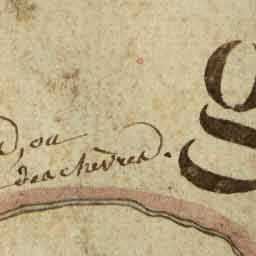 , ou
des chevres.
g